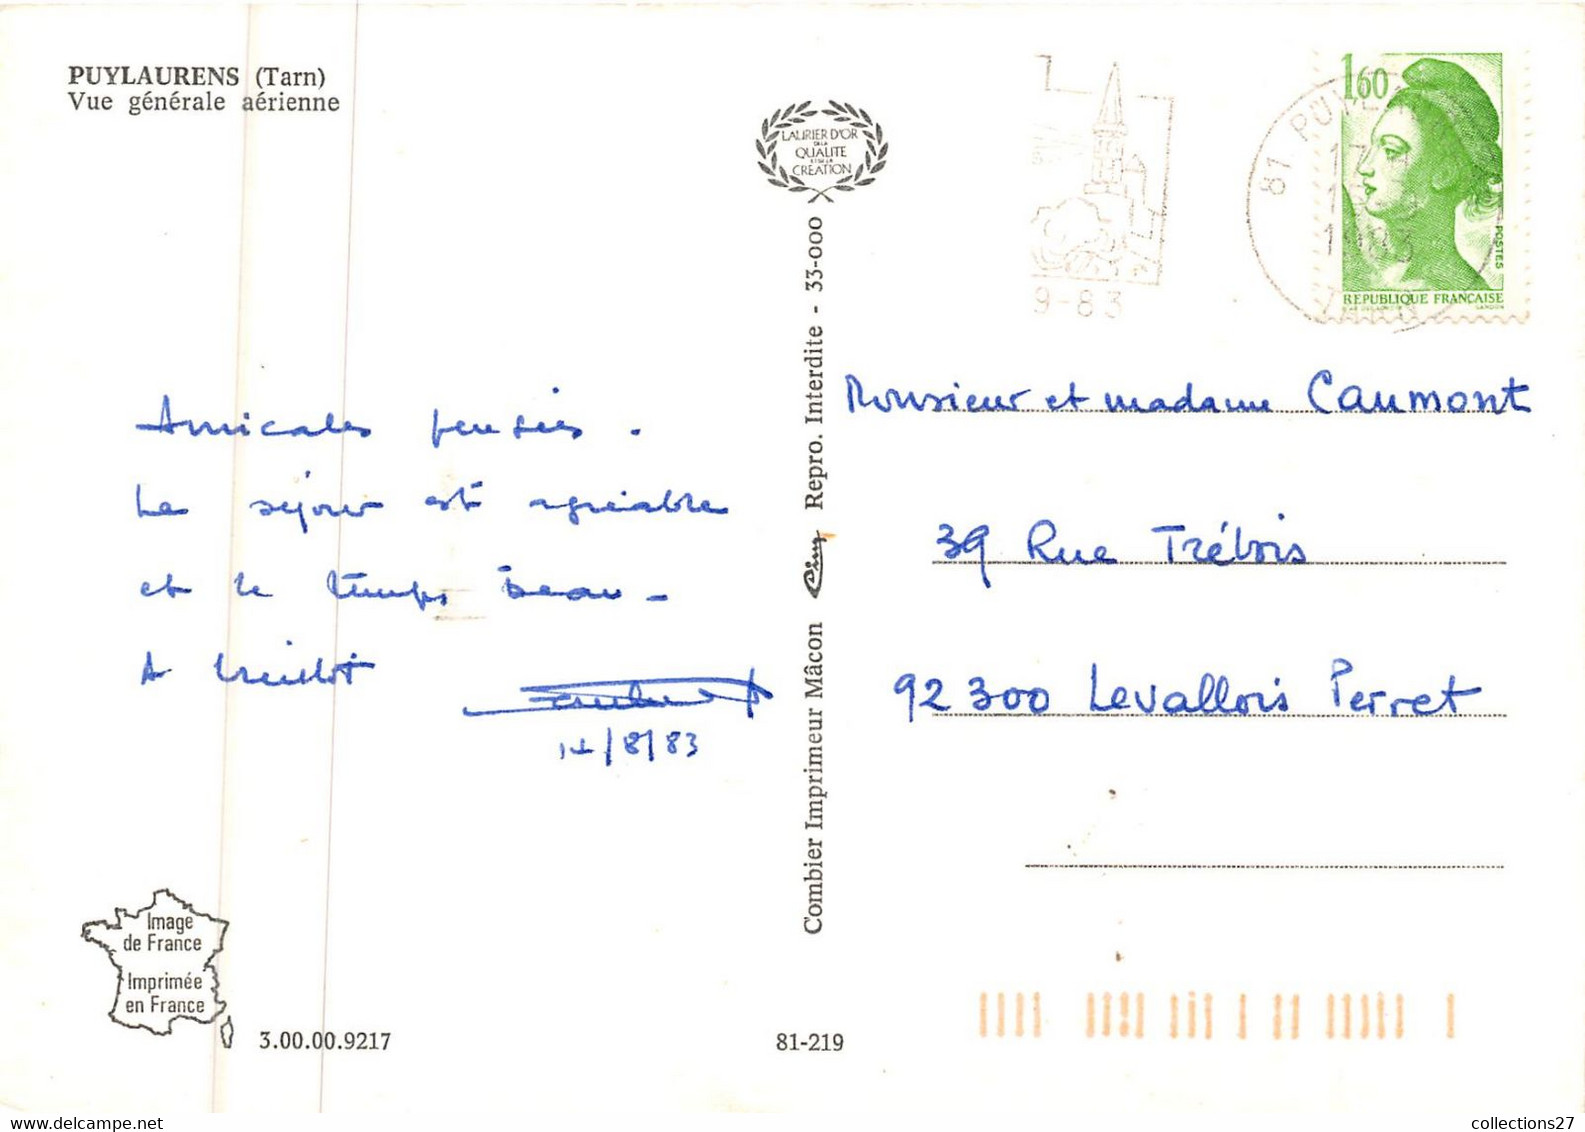 PUYLAURENS (Tarn)
Vue générale aérienne
LAURIER D'OR
DE LA
QUALITE
ET DE LA
CREATION
1,60
81 PUYL
17
1983
TARN
9-83
POSTES
REPUBLIQUE FRANÇAISE
GANDON
Amicales pensées.
Le séjour est agréable
et le temps beau -
A bientôt
14/8/83
Combier Imprimeur Mâcon Cim Repro. Interdite - 33-000
Monsieur et madame Caumont
39 Rue Trébois
92300 Levallois Perret
Image
de France
Imprimée
en France
3.00.00.9217
81-219
collections27